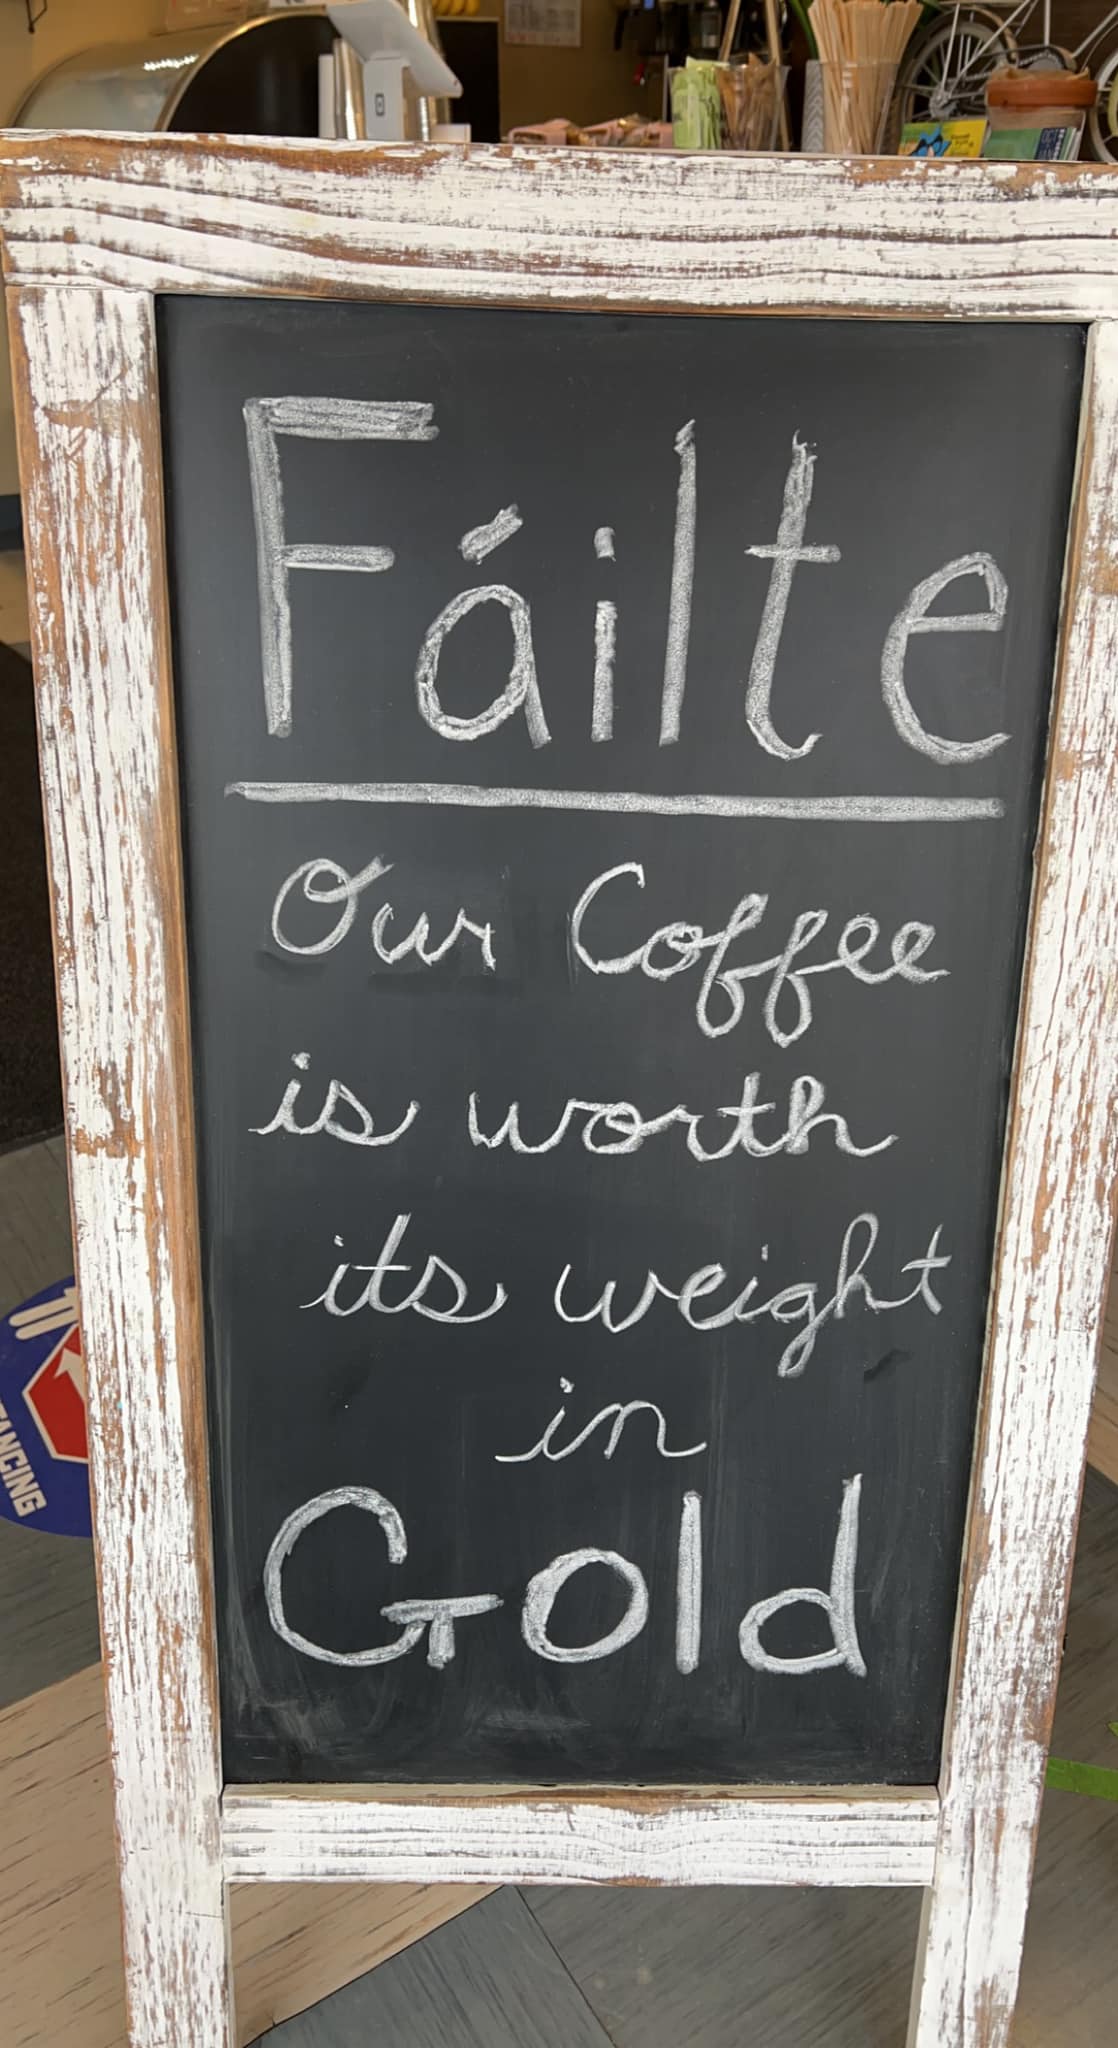 Fáilte
Our Coffee
is worth
its weight
in
Gold
TANCING